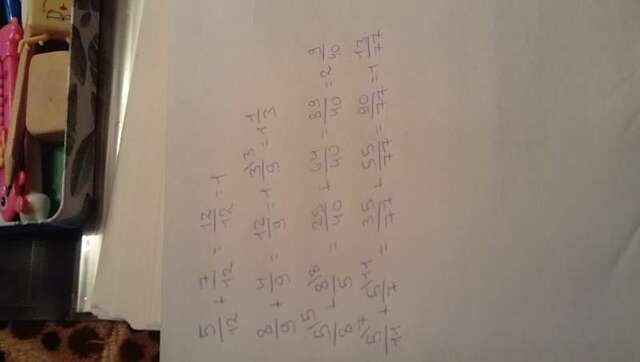 5/12 + 7/12 = 12/12 = 1
8/9 + 4/9 = 12/9 = 1 3\3/9 = 1 1/3
5\5/8 + 8\8/5 = 25/40 + 64/40 = 89/40 = 2 9/40
5\7/11 + 5\11/7 = 35/77 + 55/77 = 90/77 = 1 13/77